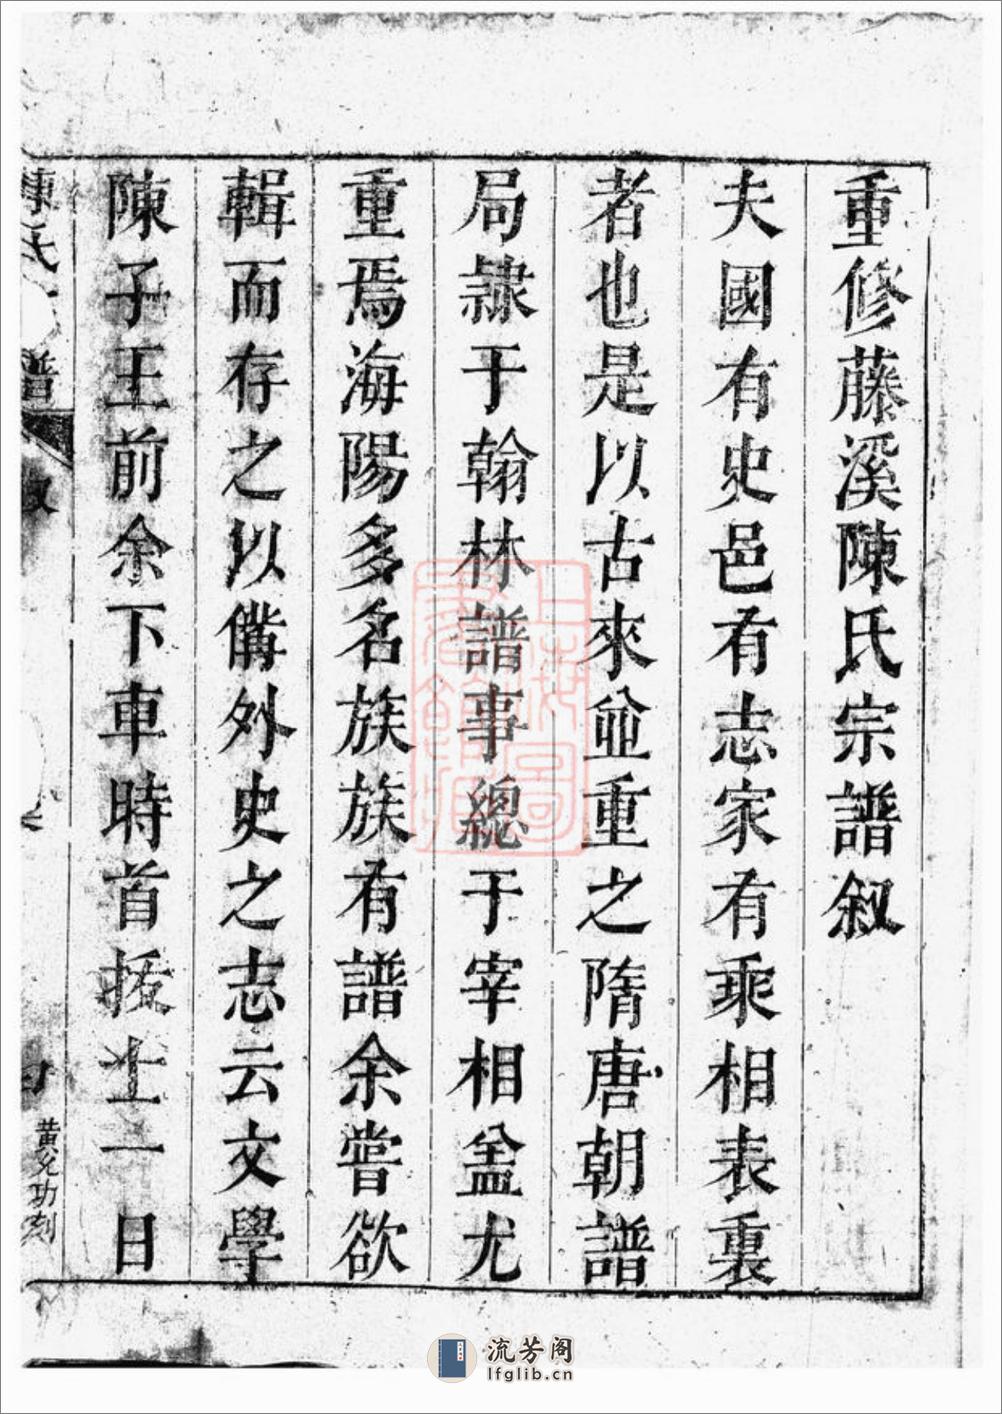 重修藤溪陳氏宗譜叙
夫國有史邑有志家有乘相表裏
者也是以古來並重之隋唐朝譜
局隷于翰林譜事總于宰相盖尤
重焉海陽多名族族有譜余嘗欲
輯而存之以備外史之志云文學
陳子王前余下車時首拔士一日
陳氏譜
叙
黄允功刻
上海圖
書館藏
流芳阁
lfglib.cn